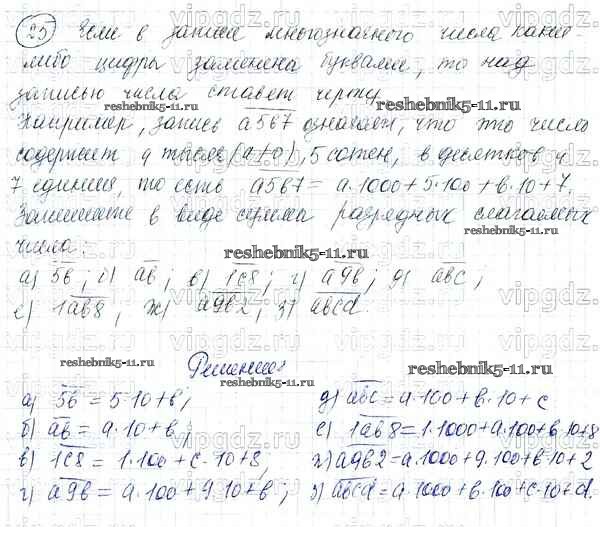 25 Если в записи многозначного числа какие-
либо цифры заменены буквами, то над
записью числа ставят черту.
reshebnik5-11.ru
Например, запись a5b7 означает, что это число
содержит a тысяч (a≠0), 5 сотен, b десятков и
7 единиц, то есть a5b7 = a·1000+5·100+b·10+7.
Запишите в виде суммы разрядных слагаемых
числа:
reshebnik5-11.ru
а) 5b; б) ab; в) 1c8; г) a9b; д) abc;
е) 1ab8, ж) a9b2, з) abcd.
Решение
reshebnik5-11.ru
reshebnik5-11.ru
а) 5b = 5·10+b;
б) ab = a·10+b;
в) 1c8 = 1·100+c·10+8,
г) a9b = a·100+9·10+b;
д) abc = a·100+b·10+c
е) 1ab8=1·1000+a·100+b·10+8
ж) a9b2=a·1000+9·100+b·10+2
з) abcd=a·1000+b·100+c·10+d.
vipgdz.ru